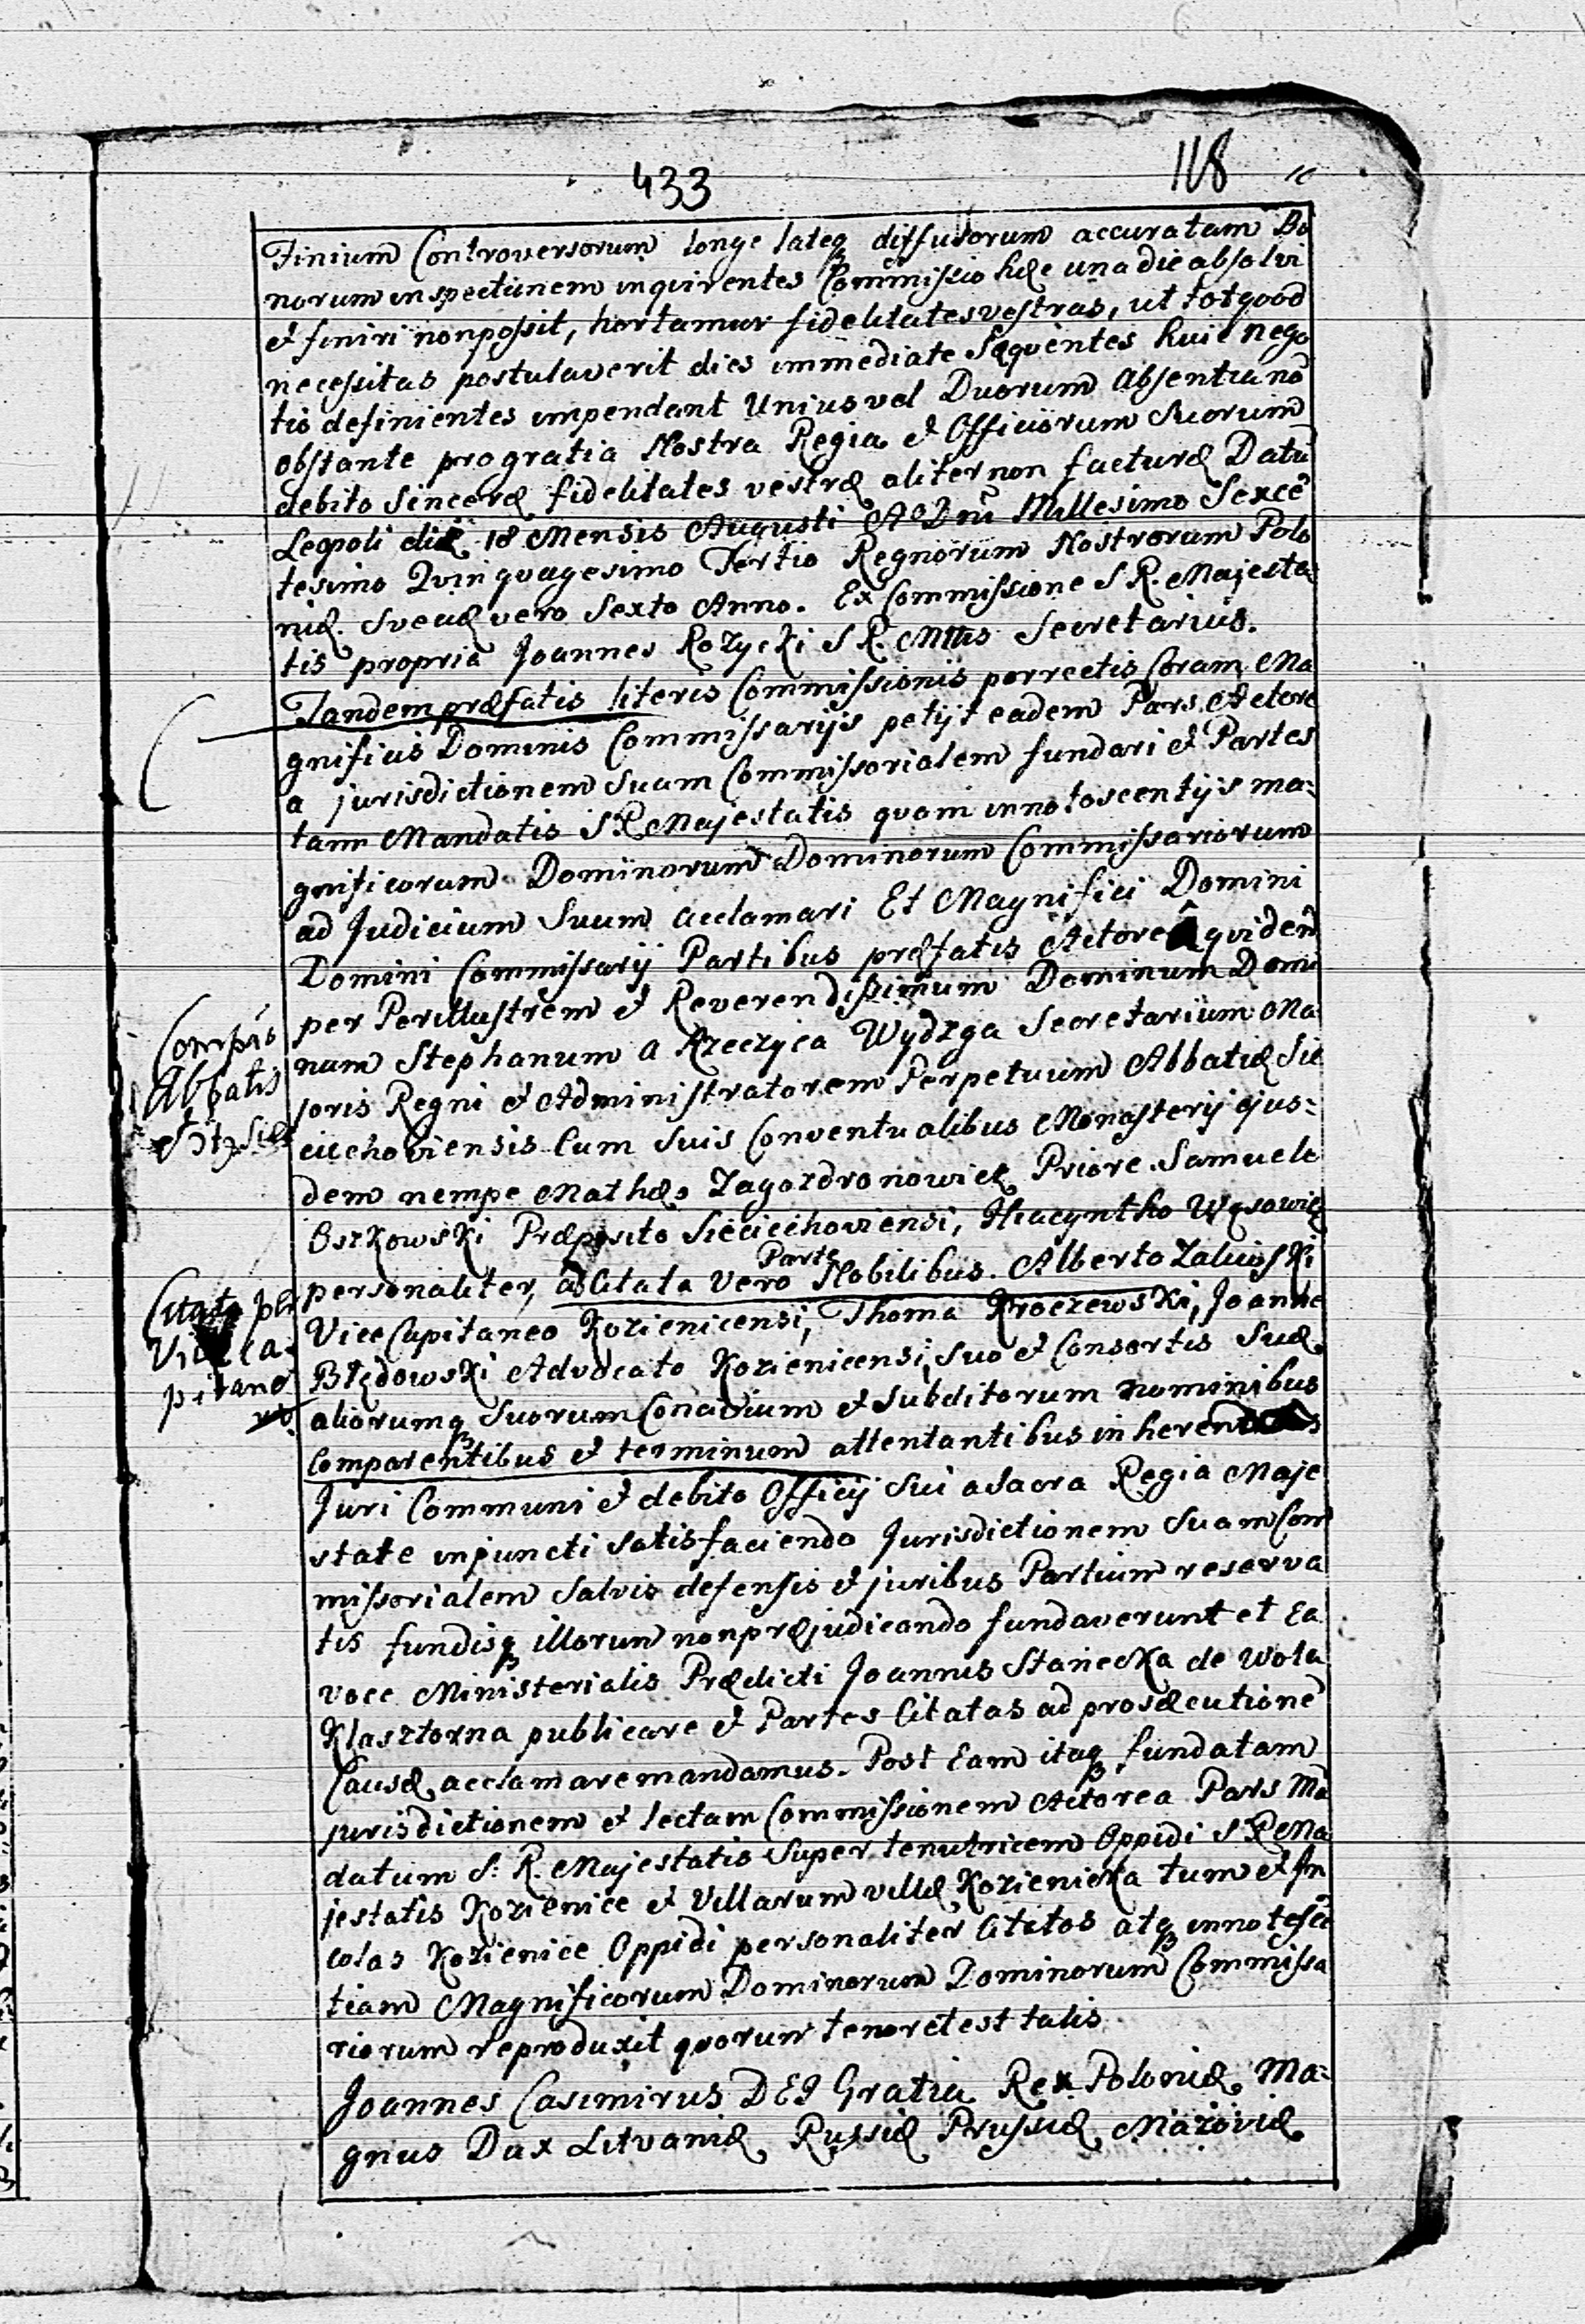 433
118
Finium Controversorum longe lateq diffusorum accuratam Bo
norum inspectionem inquirentes Commissio hæc una die absolvi
et finiri non possit, hortamur fidelitates vestras, ut tot quod
necessitas postulaverit dies immediate sequentes huic nego
tio definientes impendant Unius vel Duorum absentia nō
obstante pro gratia Nostra Regia et Officiorum Suorum
debito Sinceræ fidelitates vestræ aliter non facturæ Datū
Leopoli die 18 Mensis Augusti Ao Dni Millesimo Sexcē
tesimo Qvinquagesimo Tertio Regnorum Nostrorum Polo
niæ Sveciæ vero Sexto Anno. Ex Commissione S R. Majesta:
tis propria Joannes Rozycki S R. Mttis Secretarius.
Tandem præfatis literis Commissionis porrectis Coram Ma
gnificis Dominis Commissarijs petijt eadem Pars Actore
a jurisdictionem Suam Commissorialem fundari et Partes
tam Mandatis S R Majestatis quam innotoscentijs ma:
gnificorum Dominorum Dominorum Commissariorum
ad Judicium Suum acclamari Et Magnifici Domini
Domini Commissarij Partibus præfatis Actoreâ quidem
per Perillustrem et Reverendissimum Dominum Domi
num Stephanum a Rzeczyca Wydzga Secretarium Ma
joris Regni et Administratorem Perpetuum Abbatiæ Sie
ciechoviensis Cum Suis Conventualibus Monasterij ejus:
dem nempe Mathæo Zagozdronowicz Priore Samuele
Oszkowski Præposito Sieciechoviensi, Hiacyntho Wąsowicz
Compars
Abbatis
personaliter, Citata vero Parte Nobilibus. Alberto Zaluoski
Vice Capitaneo Kozienicensi, Thoma Kroczewski, Joanne
Błędowski Advocato Kozienicensi, Suo et Consortis Suæ
aliorumq Suorum Concivium et Subditorum nominibus
Citata
pitano
Comparentibus et terminum attentantibus in
Juri Communi et debito Officij Sui a Sacra Regia Maje
state injuncti Satisfaciendo Jurisdictionem Suam Com
missorialem Salvis defensis et juribus Partium reserva
tis fundisq illorum non præjudicando fundaverunt et Ea
voce Ministerialis Prædicti Joannis Stanecka de Wola
Klasztorna publicare et Partes Citatas ad prosæcutionē
Causæ acclamare mandamus. Post Eam itaq fundatam
jurisdictionem et lectam Commissionem Actorea Pars Mā
datum S: R. Majestatis Super tenutricem Oppidi S R Ma
jestatis Kozienice et Villarum villæ Kozienicka tum et In
colas Kozienice Oppidi personaliter Citatos atq innotescē
tiam Magnificorum Dominorum Dominorum Commissa
riorum reproduxit quorum tenor et est talis
Joannes Casimirus DEI Gratia Rex Poloniæ Ma:
gnus Dux Litvaniæ Russiæ Prussiæ Mazoviæ